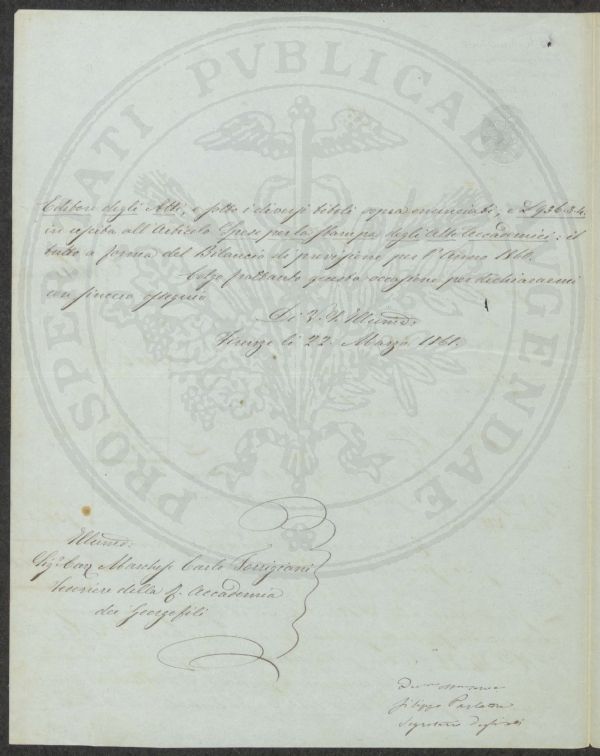 PROSPERITATI PVBLICAE AVGENDAE
Editore degli Atti, e sotto i diversi titoli sopra enunciati, e £ 936.8.4.
in uscita all'Articolo Spese per la stampa degli Atti Accademici: il
tutto a forma del Bilancio di previsione per l'Anno 1860.
Colgo frattanto questa occasione per dichiararmi
con sincero ossequio
Di V. S. Illma:
Firenze lì 22 Marzo 1861.
Illmo:
Sigr. Cav. Marchse Carlo Torrigiani
Tesoriere della R. Accademia
dei Georgofili
Filippo Parlatore
Segretario degli Atti